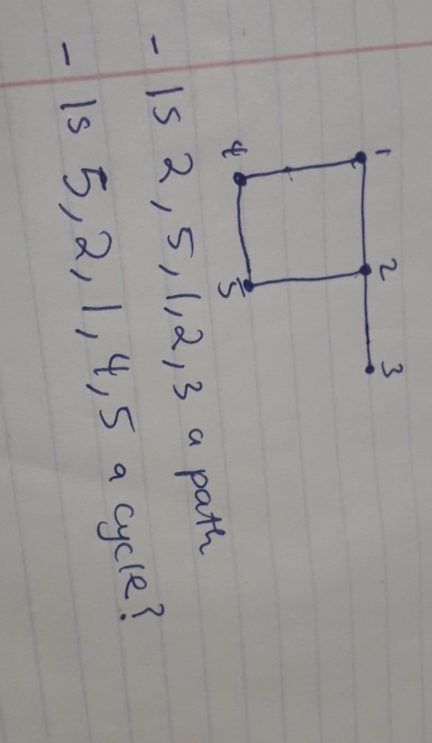 1 2 3
4 5
- Is 2, 5, 1, 2, 3 a path
- Is 5, 2, 1, 4, 5 a cycle?